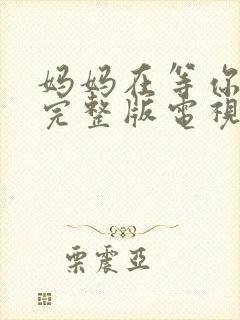 妈妈在等你
完整版電視
栗震亞